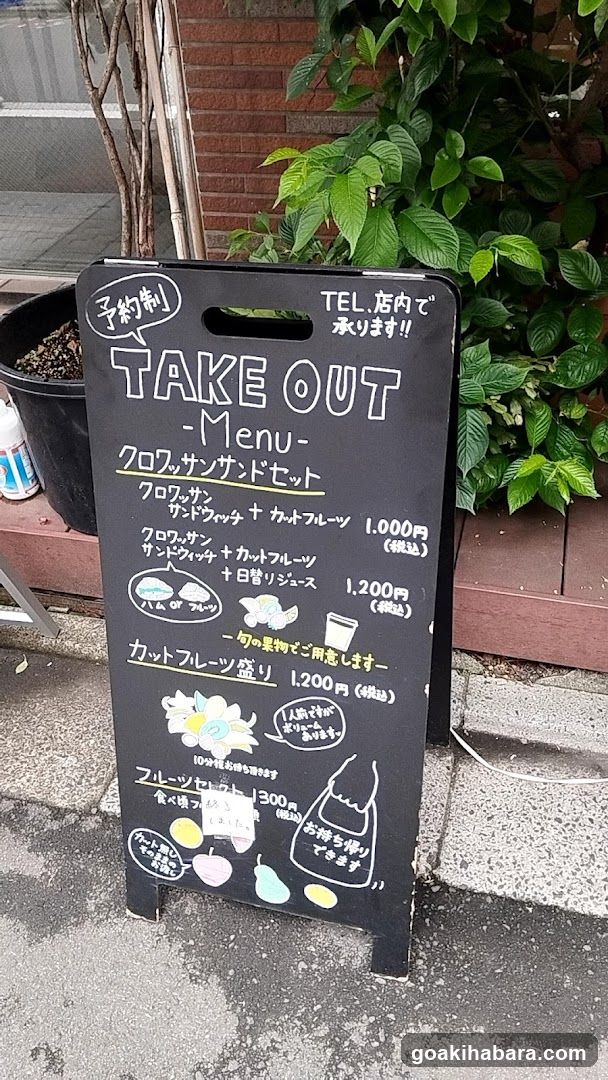 予約制
TEL、店内で
承ります!!
TAKE OUT
-Menu-
クロワッサンサンドセット
クロワッサン
サンドウィッチ + カットフルーツ 1,000円
(税込)
クロワッサン
サンドウィッチ + カットフルーツ
+ 日替りジュース 1,200円
(税込)
ハム or フルーツ
ー旬の果物でご用意しますー
カットフルーツ盛り 1,200円 (税込)
1人前ですが
ボリューム
あります。
10分程お待ち頂きます
フルーツセレクト 1300円
食べ頃フル
(税込)
終了
しました。
カット無し
そのままの
お渡し
お持ち帰り
できます
goakihabara.com